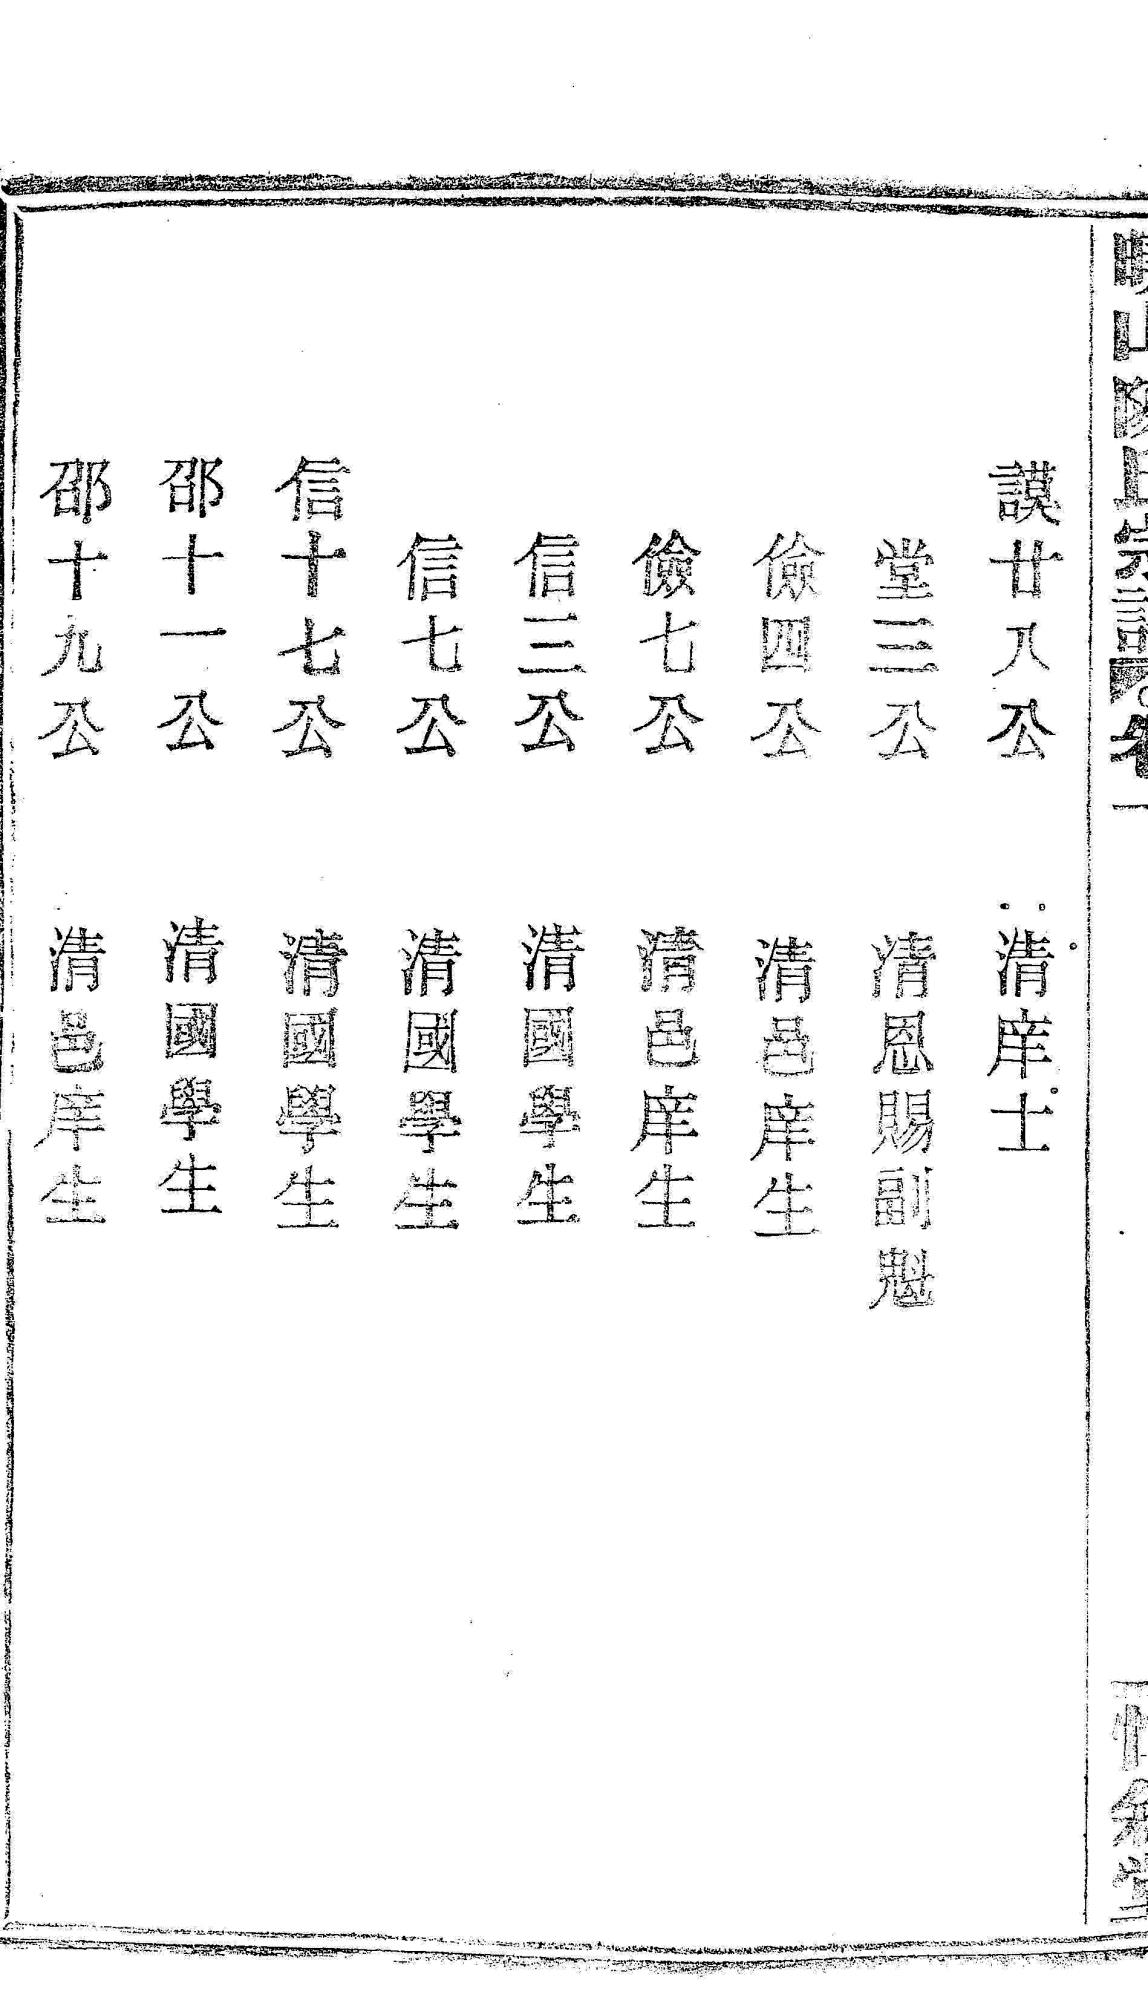 謨廿八公 清庠士
堂三公 清恩賜副魁
儉四公 清邑庠生
儉七公 清邑庠生
信三公 清國學生
信七公 清國學生
信十七公 清國學生
邵十一公 清國學生
邵十九公 清邑庠生